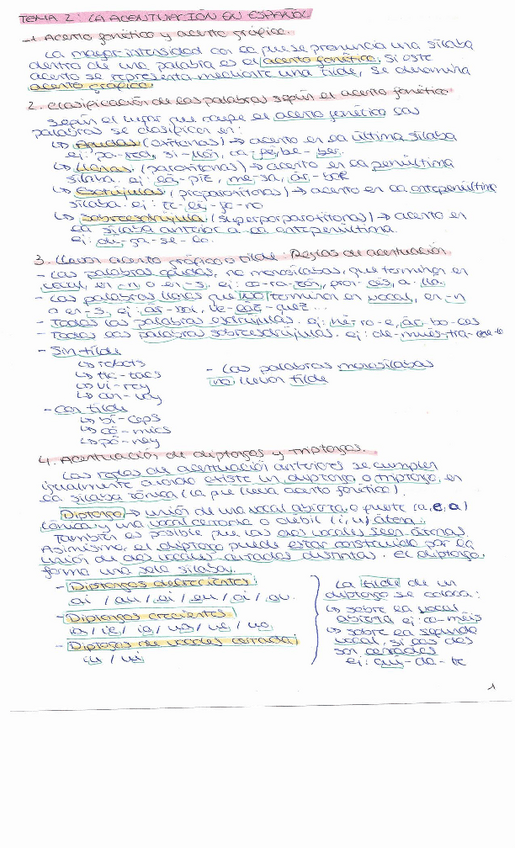 TEMA 2: LA ACENTUACIÓN EN ESPAÑOL
1. Acento fonético y acento gráfico.
La mayor intensidad con la que se pronuncia una sílaba
dentro de una palabra es el acento fonético. Si este
acento se representa mediante una tilde, se denomina
acento gráfico.
2. Clasificación de las palabras según el acento fonético
Según el lugar que ocupe el acento fonético las
palabras se clasifican en:
↳ Agudas (oxítonas) → acento en la última sílaba
ej: si-llón, ca-fé, be-ber.
↳ Llanas (paroxítonas) → acento en la penúltima
sílaba. ej: lá-piz, me-sa, ár-bol
↳ Esdrújulas (proparoxítonas) → acento en antepenúltima
sílaba. ej:
↳ Sobresdrújula (superproparoxítonas) → acento en
la sílaba anterior a la antepenúltima.
ej: dí-ga-se-lo.
3. Llevan acento gráfico o tilde: Reglas de acentuación.
- Las palabras agudas, no monosílabas, que terminen en
vocal, en -n o en -s. ej: co-ra-zón,
- Las palabras llanas que no terminen en vocal, en -n
o en -s. ej:
- Todas las palabras esdrújulas. ej: hé-ro-e, ár-bo-les
- Todas las palabras sobresdrújulas. ej: de-mués-tra-
- Sin tilde
↳ robots
↳ tic-tacs
↳ vi-rrey
- Las palabras monosílabas
no llevan tilde
- Con tilde
↳ bí-ceps
↳ có-mics
↳ pó-ney
4. Acentuación de diptongos y triptongos.
Las reglas de acentuación anteriores se cumplen
igualmente cuando existe un diptongo o triptongo, en
la sílaba tónica (la que lleva acento fonético).
Diptongo → unión de una vocal abierta o fuerte (a, e, o)
tónica y una vocal cerrada o débil (i, u) átona.
También es posible que las dos vocales sean átonas.
Asimismo, el diptongo puede estar constituido por la
unión de dos vocales cerradas distintas. El diptongo
forma una sola sílaba.
- Diptongos decrecientes:
ai / au / ei / eu / oi / ou.
- Diptongos crecientes:
ia / ie / io / ua / ue / uo
- Diptongos de vocales cerradas:
iu / ui
La tilde de un
diptongo se coloca:
↳ sobre la vocal
abierta ej: co-méis
↳ sobre la segunda
vocal, si las dos
son cerradas
ej: cuí-da-te
1